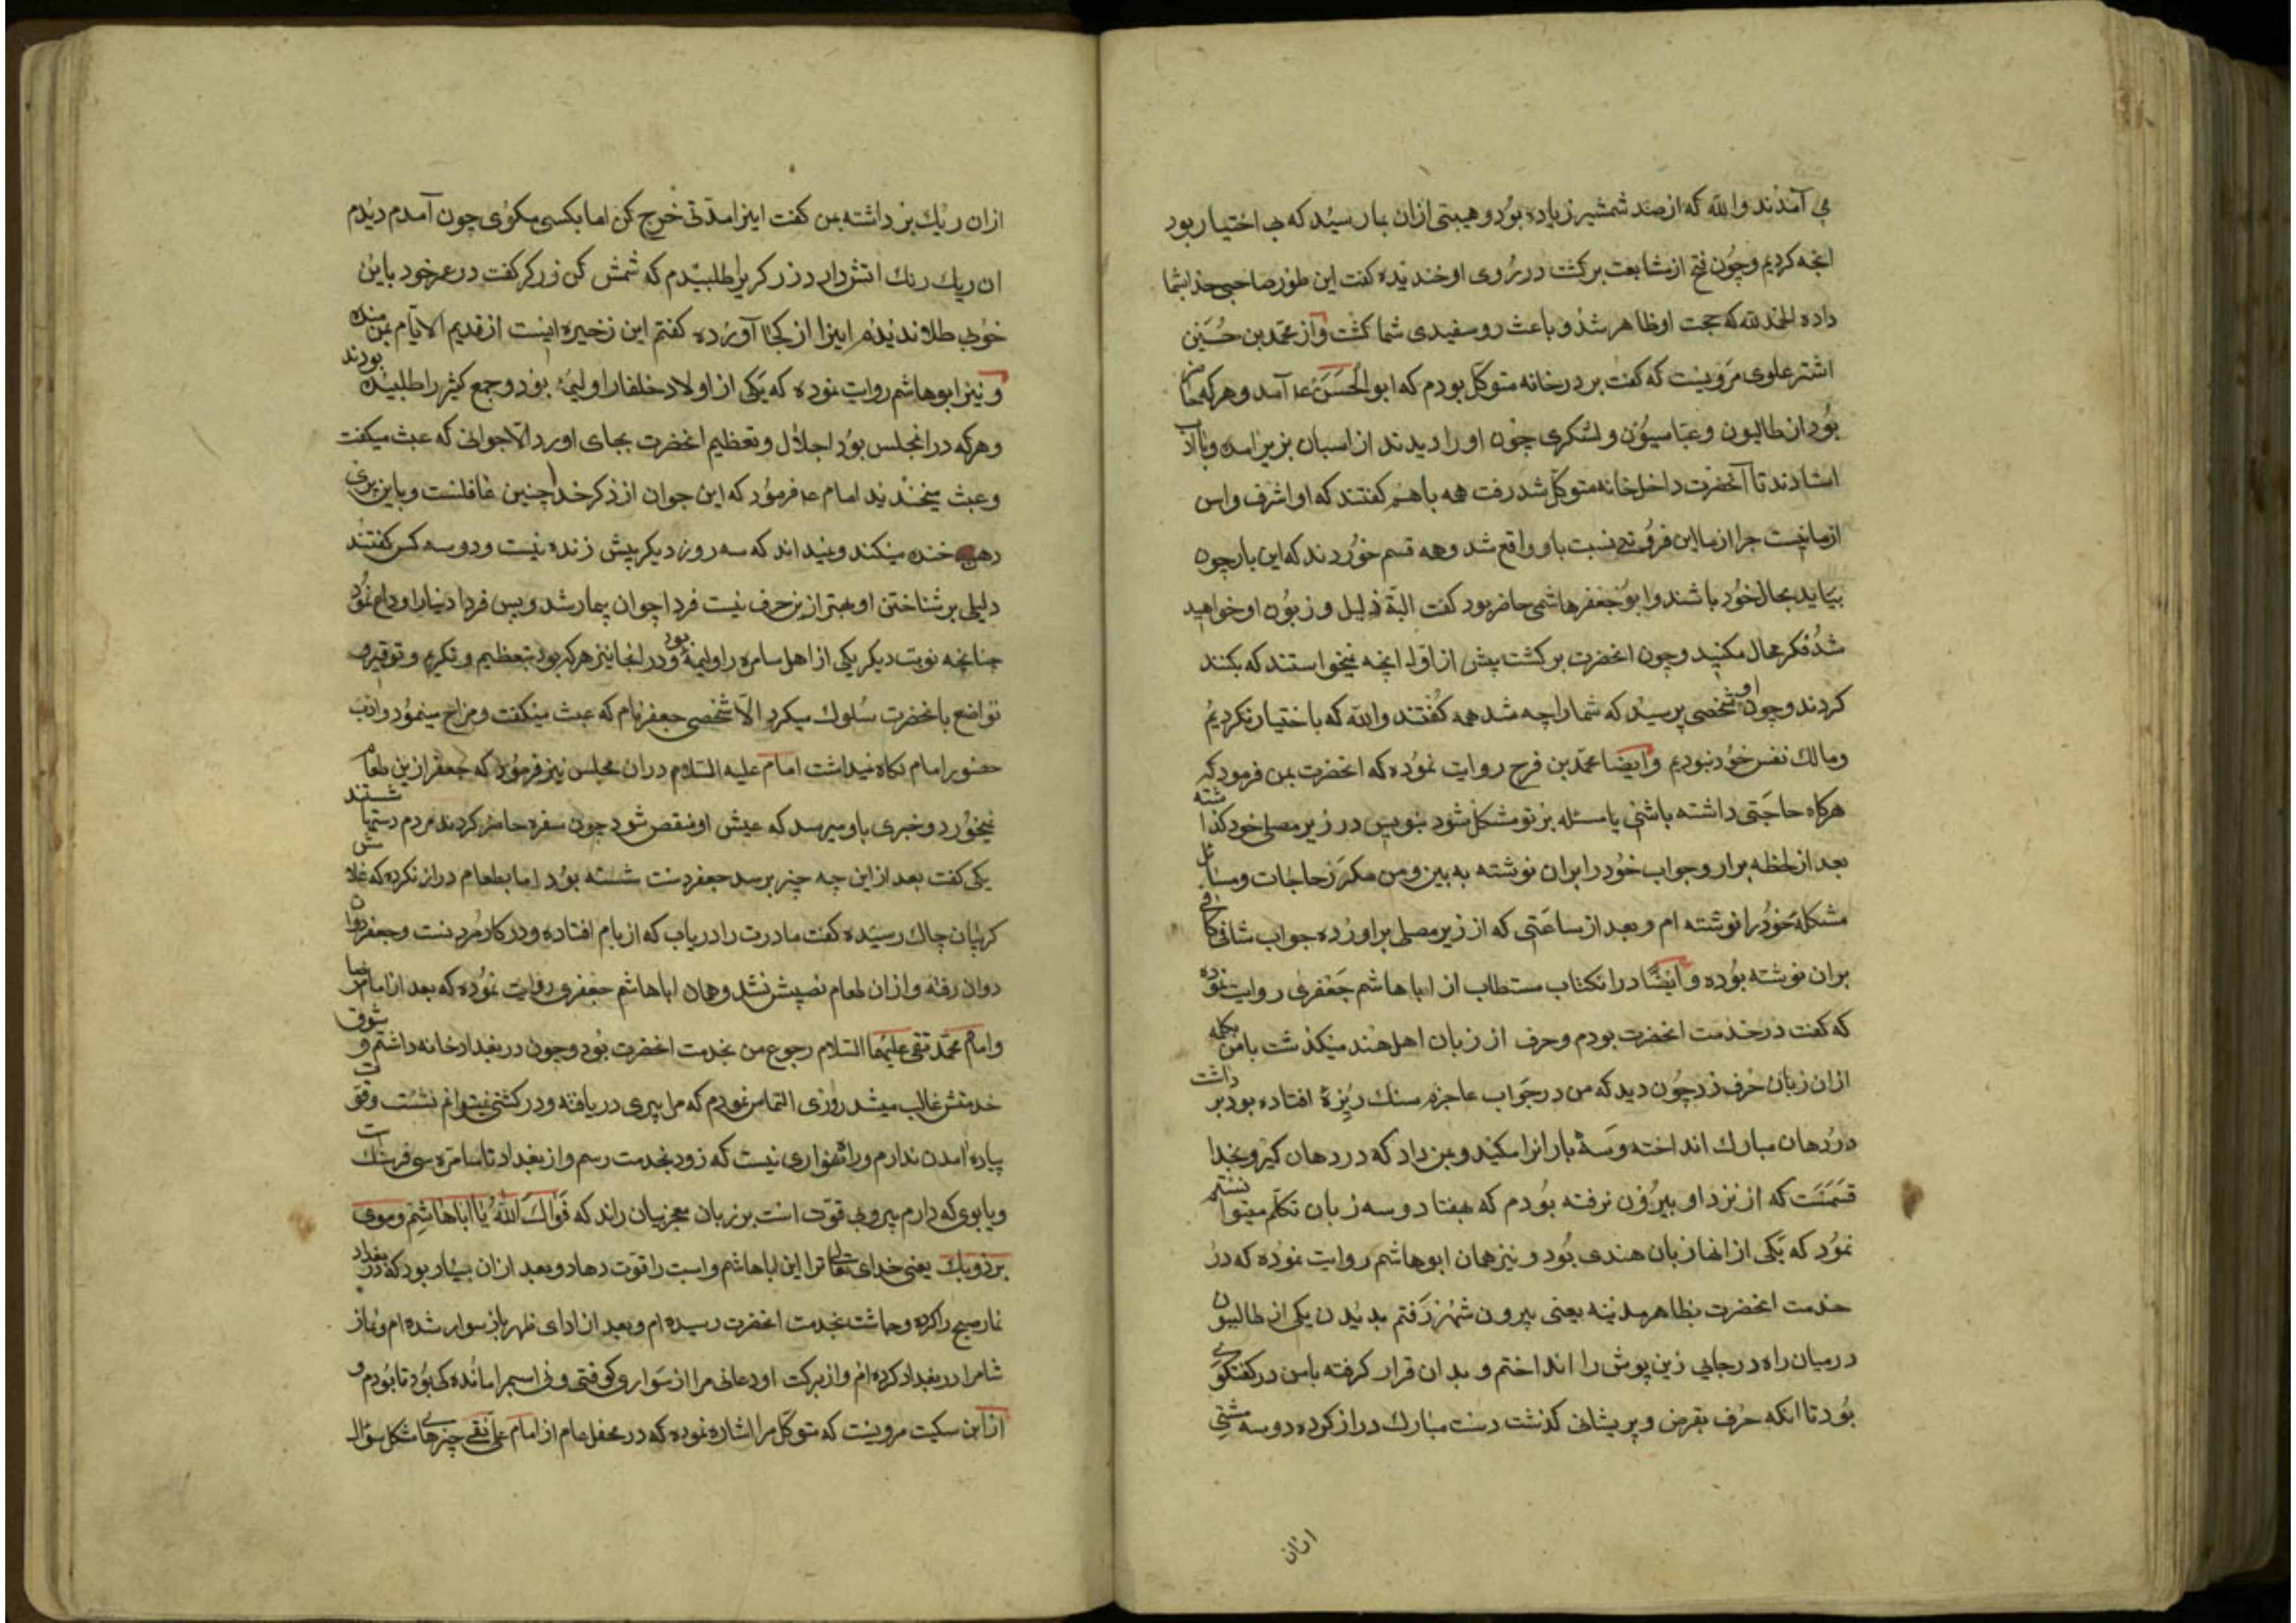 می آمدند والله که از صد شمشیر زیاده بود و هیبتی ازان بما رسید که بی اختیار بود
انچه کردیم و چون فتح از مشایعت برکشت در روی او خندیده کفت این طور صاحبی خدا بشما
داده الحمد لله که حجت او ظاهر شد و باعث رو سفیدی شما کشت و از محمد بن حسین
اشتر علوی مرویست که کفت بر در خانه متوکل بودم که ابو الحسن ع آمد و هر که حاضر
بود از طالبون و عباسیون و لشکری چون او را دیدند از اسبان بزیر امده و باادب
استادند تا آنحضرت داخل خانه متوکل شد رفت همه باهم کفتند که او اشرف و اسن
از ما نیست چرا از ما این فروتنی نسبت باو واقع شد و همه قسم خوردند که این بار چون
بیاید بحال خود باشند و ابو جعفر هاشمی حاضر بود کفت البتة ذلیل و زبون او خواهید
شد فکر محال مکنید و چون انحضرت برکشت پیش از اول انچه نمیخواستند که بکنند
کردند و چون او شخصی پرسید که شما را چه شد همه کفتند والله که باختیار نکردیم
و مالک نفس خود نبودیم و ایضا محمد بن فرج روایت نموده که انحضرت بمن فرمود که
هرکاه حاجتی داشته باشی یا مسئله بر تو مشکل شود بنویس در زیر مصلی خود کذاشته
بعد از لحظه برار و جواب خود را بران نوشته به بین و من مکرر حاجات و مسائل
مشکله خود را نوشته ام و بعد از ساعتی که از زیر مصلی براورده جواب شافی کافی
بران نوشته بوده و ایضا در انکتاب مستطاب از ابا هاشم جعفری روایت نموده
که کفت در خدمت انحضرت بودم و حرف از زبان اهل هند میکذشت بامن بکلمه
ازان زبان حرف زد چون دید که من در جواب عاجزم سنک ریزهٔ افتاده بود برداشت
در دهان مبارک انداخته و سه بار انرا مکید و بمن داد که در دهان کیر و بخدا
قسمست که از نزد او بیرون نرفته بودم که بهفتاد و سه زبان تکلم میتوانستم
نمود که یکی از انها زبان هندی بود و نیز همان ابو هاشم روایت نموده که در
خدمت انحضرت بظاهر مدینه یعنی بیرون شهر رفتم بدیدن یکی از طالبون
درمیان راه در جایی زین پوش را انداختم و بدان قرار کرفته بامن در کفتکوی
بود تا انکه حرف بقرض و پریشانی کذشت دست مبارک دراز کرده دوسه مشتی
ازان
ازان ریک برداشته بمن کفت اینرا مدتی خرج کن اما بکسی مکوی چون آمدم دیدم
ان ریک رنک اتش دارد زرکریرا طلبیدم که شمش کن زرکر کفت در عمر خود باین
خوبی طلا ندیدم اینرا از کجا آورده کفتم این زخیره ایست از قدیم الایام بمن
و نیز ابو هاشم روایت نموده که یکی از اولاد خلفا را ولیمه بود و جمع کثیر را طلبیده بودند
و هر که در انجلس بود اجلال و تعظیم انحضرت بجای اورد الا جوانی که عبث میکفت
و عبث میخندید امام ع فرمود که این جوان از ذکر خدا چنین غافلست و باین پری
دهن خنده میکند و نمیداند که سه روز دیکر بیش زنده نیست و دوسه کس کفتند
دلیلی بر شناختن او بهتر ازین حرف نیست فردا جوان بیمار شد و پس فردا دنیا را وداع نمود
چنانچه نوبت دیکر یکی از اهل سامره را ولیمهٔ بود و در انجا نیز هر که بود بتعظیم و تکریم و توقیر و
تواضع بانحضرت سلوک میکرد الا شخصی جعفر نام که عبث میکفت و مزاح مینمود و ادب
حضور امام نکاه نمیداشت امام علیه السلام دران مجلس نیز فرمود که جعفر ازین طعام
نمیخورد و خبری باو میرسد که عیش او منقص شود چون سفره حاضر کردند مردم دستها شستند
یکی کفت بعد از این چه چیز برسد جعفر دست شسته بود اما بطعام دراز نکرده که غلامش
کریبان چاک رسیده کفت مادرت را دریاب که از بام افتاده و در کار مردنست و جعفر روان
دوان رفته و ازان طعام نصیبش نشد و همان ابا هاشم جعفری روایت نموده که بعد از امام رضا
و امام محمد تقی علیهما السلام رجوع من بخدمت انحضرت بود و چون در بغداد خانه داشتم و شوق
خدمتش غالب میشد روزی التماس نمودم که مرا پیری دریافته و در کشتی نمیتوانم نشست و قوت
پیاده امدن ندارم و راه همواری نیست که زود بخدمت رسم و از بغداد تا سامره سی فرسنک است
و یابوی که دارم پیر و بی قوت است بر زبان معجز بیان راند که قواک الله یا ابا هاشم و قوی
برذونک یعنی خدای تعالی ترا این ابا هاشم و اسبت را قوت دهاد و بعد ازان بسیار بود که در بغداد
نماز صبح را کرده و چاشت بخدمت انحضرت رسیده ام و بعد از ادای ظهر باز سوار شده ام و نماز
شام را در بغداد کرده ام و از برکت او دعائی مرا از سواری کوفتی و نی اسبم را ماندکی بود تا بودم و
از ابن سکیت مرویست که متوکل مرا اشاره نموده که در محفل عام از امام علی نقی چیزهای مشکل سؤال